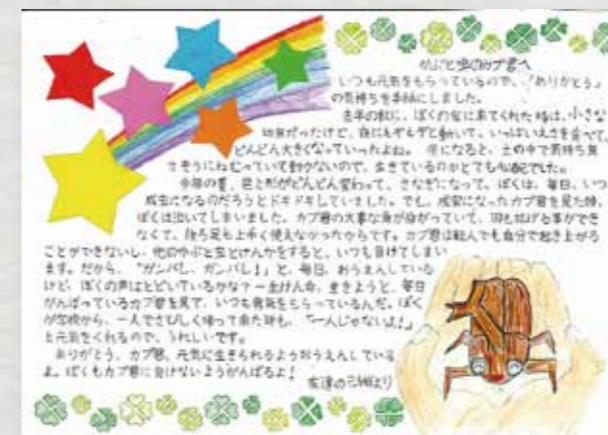 かぶと虫のカブ君へ
いつも元気をもらっているので、「ありがとう」
の気持ちを手紙にしました。
去年の秋に、ぼくの家に来てくれた時は、小さな
幼虫だったけど、夜にもぞもぞと動いて、いっぱいえさを食べて、
どんどん大きくなっていったよね。冬になると、土の中で気持ち良
さそうにねむっていて動かないので、生きているのかとても心配でした。
今年の夏、色と形がどんどん変わって、さなぎになって。ぼくは、毎日、いつ
成虫になるのだろうとドキドキしていました。でも、成虫になったカブ君を見た時、
ぼくは泣いてしまいました。カブ君の大事な角が曲がっていて、羽も広げる事ができ
なくて、後ろ足も上手く使えなかったからです。カブ君は転んでも自分で起き上がる
ことができないし、他のかぶと虫とけんかをすると、いつも負けてしまい
ます。だから、"ガンバレ、ガンバレ!"と、毎日、おうえんしている
けど、ぼくの声はとどいているかな?一生けん命、生きようと、毎日
がんばっているカブ君を見て、いつも勇気をもらっているんだ。ぼく
が学校から、一人でさびしく帰って来た時も、「一人じゃないよ!」
と元気をくれるので、うれしいです。
ありがとう、カブ君。元気に生きられるようおうえんしている
よ。ぼくもカブ君に負けないようがんばるよ!
友達の より